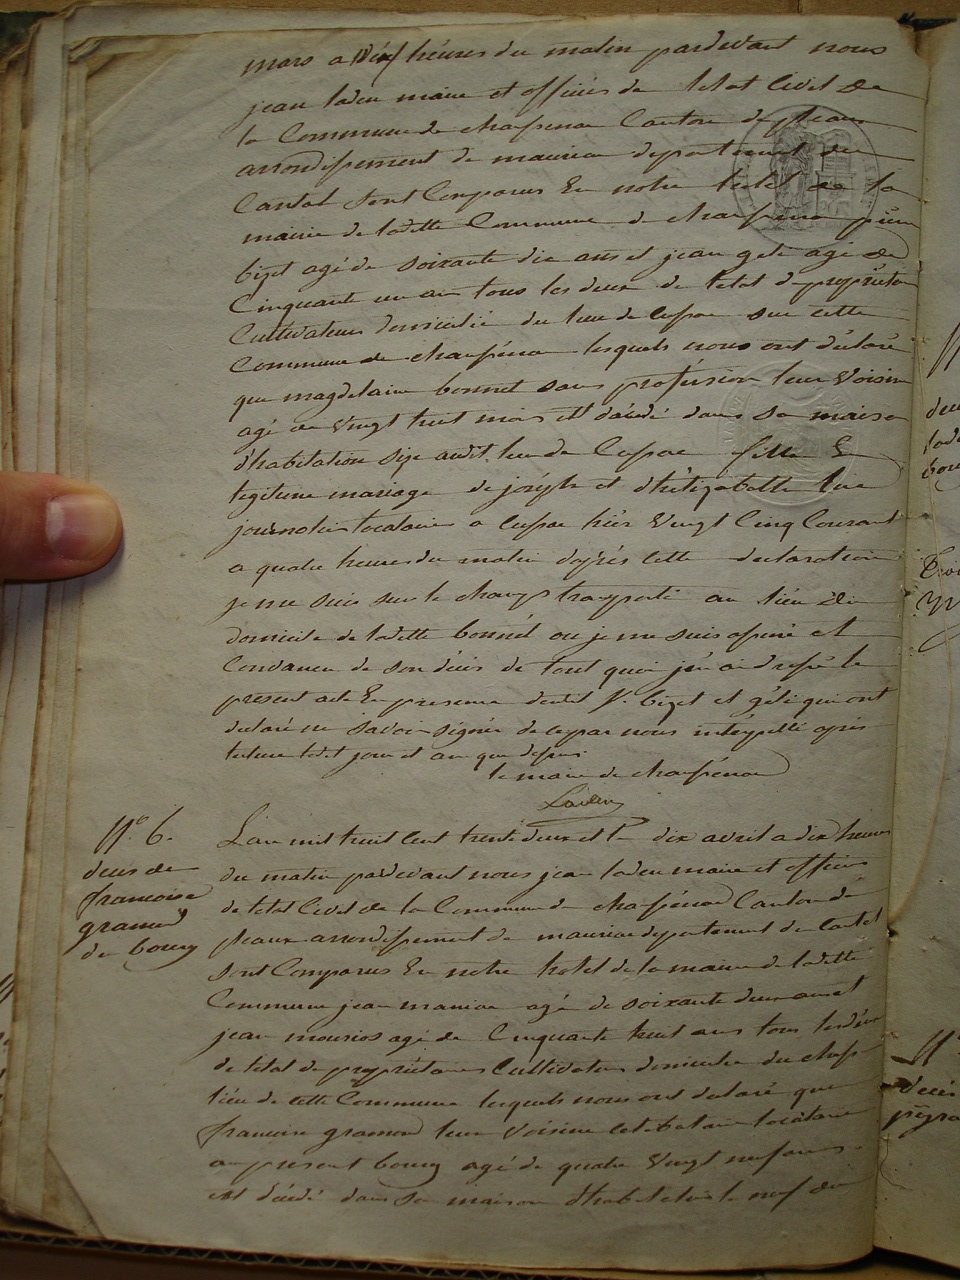 mars a Dix heures du matin pardevant nous
jean laden maire et officiés de letat Civil de
la Commune de chaussenac Canton de pleaux
arrondissement de mauriac departement du
Cantal sont Comparus En notre hotel de la
mairie de ladette Commune de chaussenac
bizet agé de soixante dix ans et jean gele agé de
Cinquante un an tous les deux de letat de propriétaire
Cultivateur domicilié du lieu de cussac sur cette
Commune de chaussenac lesquels nous ont déclaré
que magdelaine bonnet sans profession leur Voisine
agé de vingt huit mois est décédé dans sa maison
d'habitation size audit lieu de Cussac fille En
legitime mariage de joseph et d'helizabette
journalier locataire a cussac hier vingt Cinq Courant
a quatre heures du matin d'après cette declaration
je me suis sur le champ transporté au lieu du
domicile de ladette bonnet ou je me suis assuré et
Convaincu de son décès de tout quoi j'en ai dressé le
present acte En presence desdits Srs bizet et géle qui ont
declaré ne savoir signer de ce par nous interpellé après
lecture ledit jour et an que dessus
le maire de chaussenac
Laden
N° 6. L'an mil huit Cent trente deux et le dix avril a dix heures
deces de
francoise
gramond
du bourg
du matin pardevant nous jean laden maire et officier
de letat Civil de la Commune de chaussenac Canton de
pleaux arrondissement de mauriac departement du Cantal
sont Comparus En notre hotel de la mairie de ladette
Commune jean maniac agé de soixante deux ans et
jean mourios agé de Cinquante huit ans tous les deux
de letat de propriétaires Cultivateurs domiciliés du chef
lieu de cette Commune lesquels nous ont declaré que
francoise gramond leur Voisine Celebataire locataire
au present bourg agé de quatre vingt neuf ans
est décédé dans sa maison d'habitation le neuf du